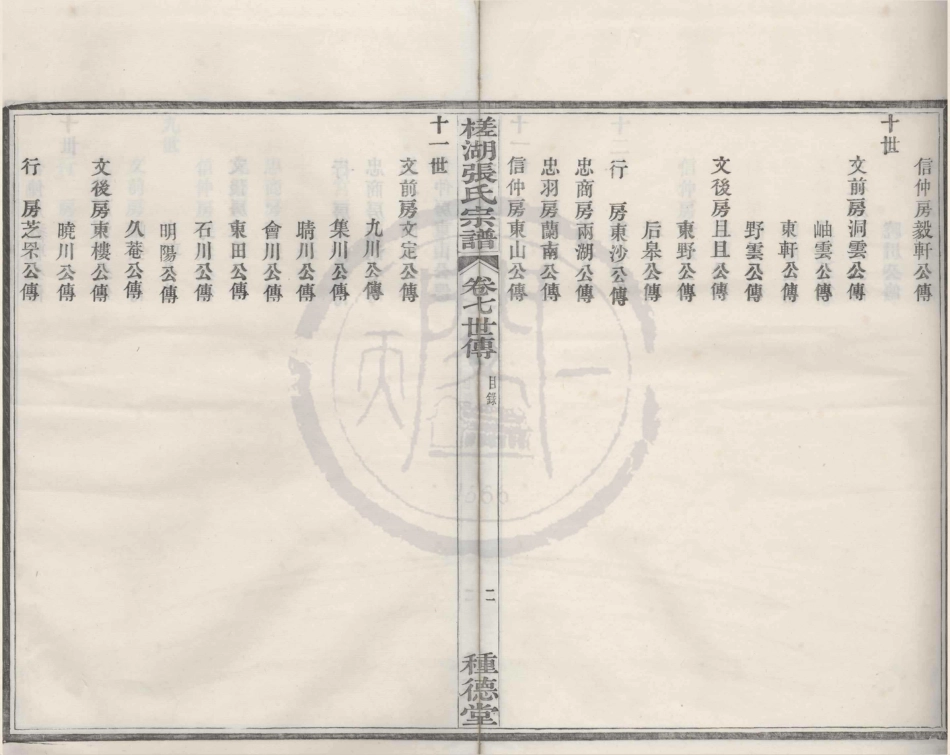 信仲房毅軒公傳
十世
文前房洞雲公傳
岫雲公傳
東軒公傳
野雲公傳
文後房且且公傳
東野公傳
后皋公傳
行　房東沙公傳
忠商房兩湖公傳
忠羽房蘭南公傳
信仲房東山公傳
槎湖張氏宗譜
卷七世傳
目錄
二
種德堂
十一世
文前房文定公傳
九川公傳
集川公傳
晴川公傳
會川公傳
東田公傳
石川公傳
明陽公傳
久菴公傳
文後房東樓公傳
曉川公傳
行　房芝罘公傳